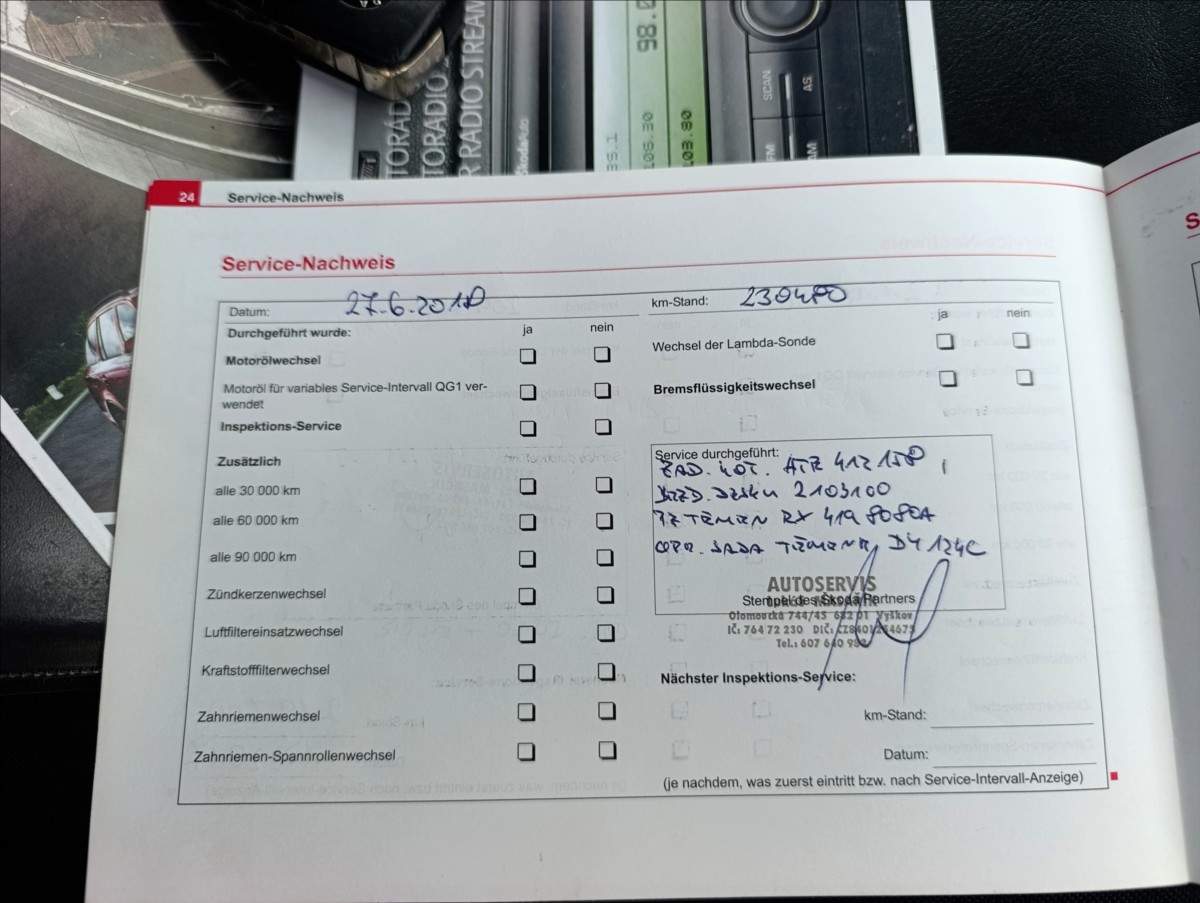 TORÁD
TORADIO.
R RADIO STREAM
ŠkodaAuto
98.0
106.30
103.80
SCAN
AS
FM
AM
24 Service-Nachweis
Service-Nachweis
Datum: 27.6.2018
km-Stand: 230480
Durchgeführt wurde: ja nein
ja nein
Motorölwechsel
Wechsel der Lambda-Sonde
Motoröl für variables Service-Intervall QG1 ver-
wendet
Bremsflüssigkeitswechsel
Inspektions-Service
Zusätzlich
alle 30 000 km
alle 60 000 km
alle 90 000 km
Zündkerzenwechsel
Luftfiltereinsatzwechsel
Kraftstofffilterwechsel
Zahnriemenwechsel
Zahnriemen-Spannrollenwechsel
Service durchgeführt:
ZAD. KOT. ATE 412158
DESKY 2103100
TŘMEN RX 4198080A
OPR. SADA D4124C
AUTOSERVIS
Stempel des Škoda Partners
Olomoucká 744/45 682 01 Vyškov
IČ: 764 72 230 DIČ:
Tel.: 607 640
Nächster Inspektions-Service:
km-Stand:
Datum:
(je nachdem, was zuerst eintritt bzw. nach Service-Intervall-Anzeige)